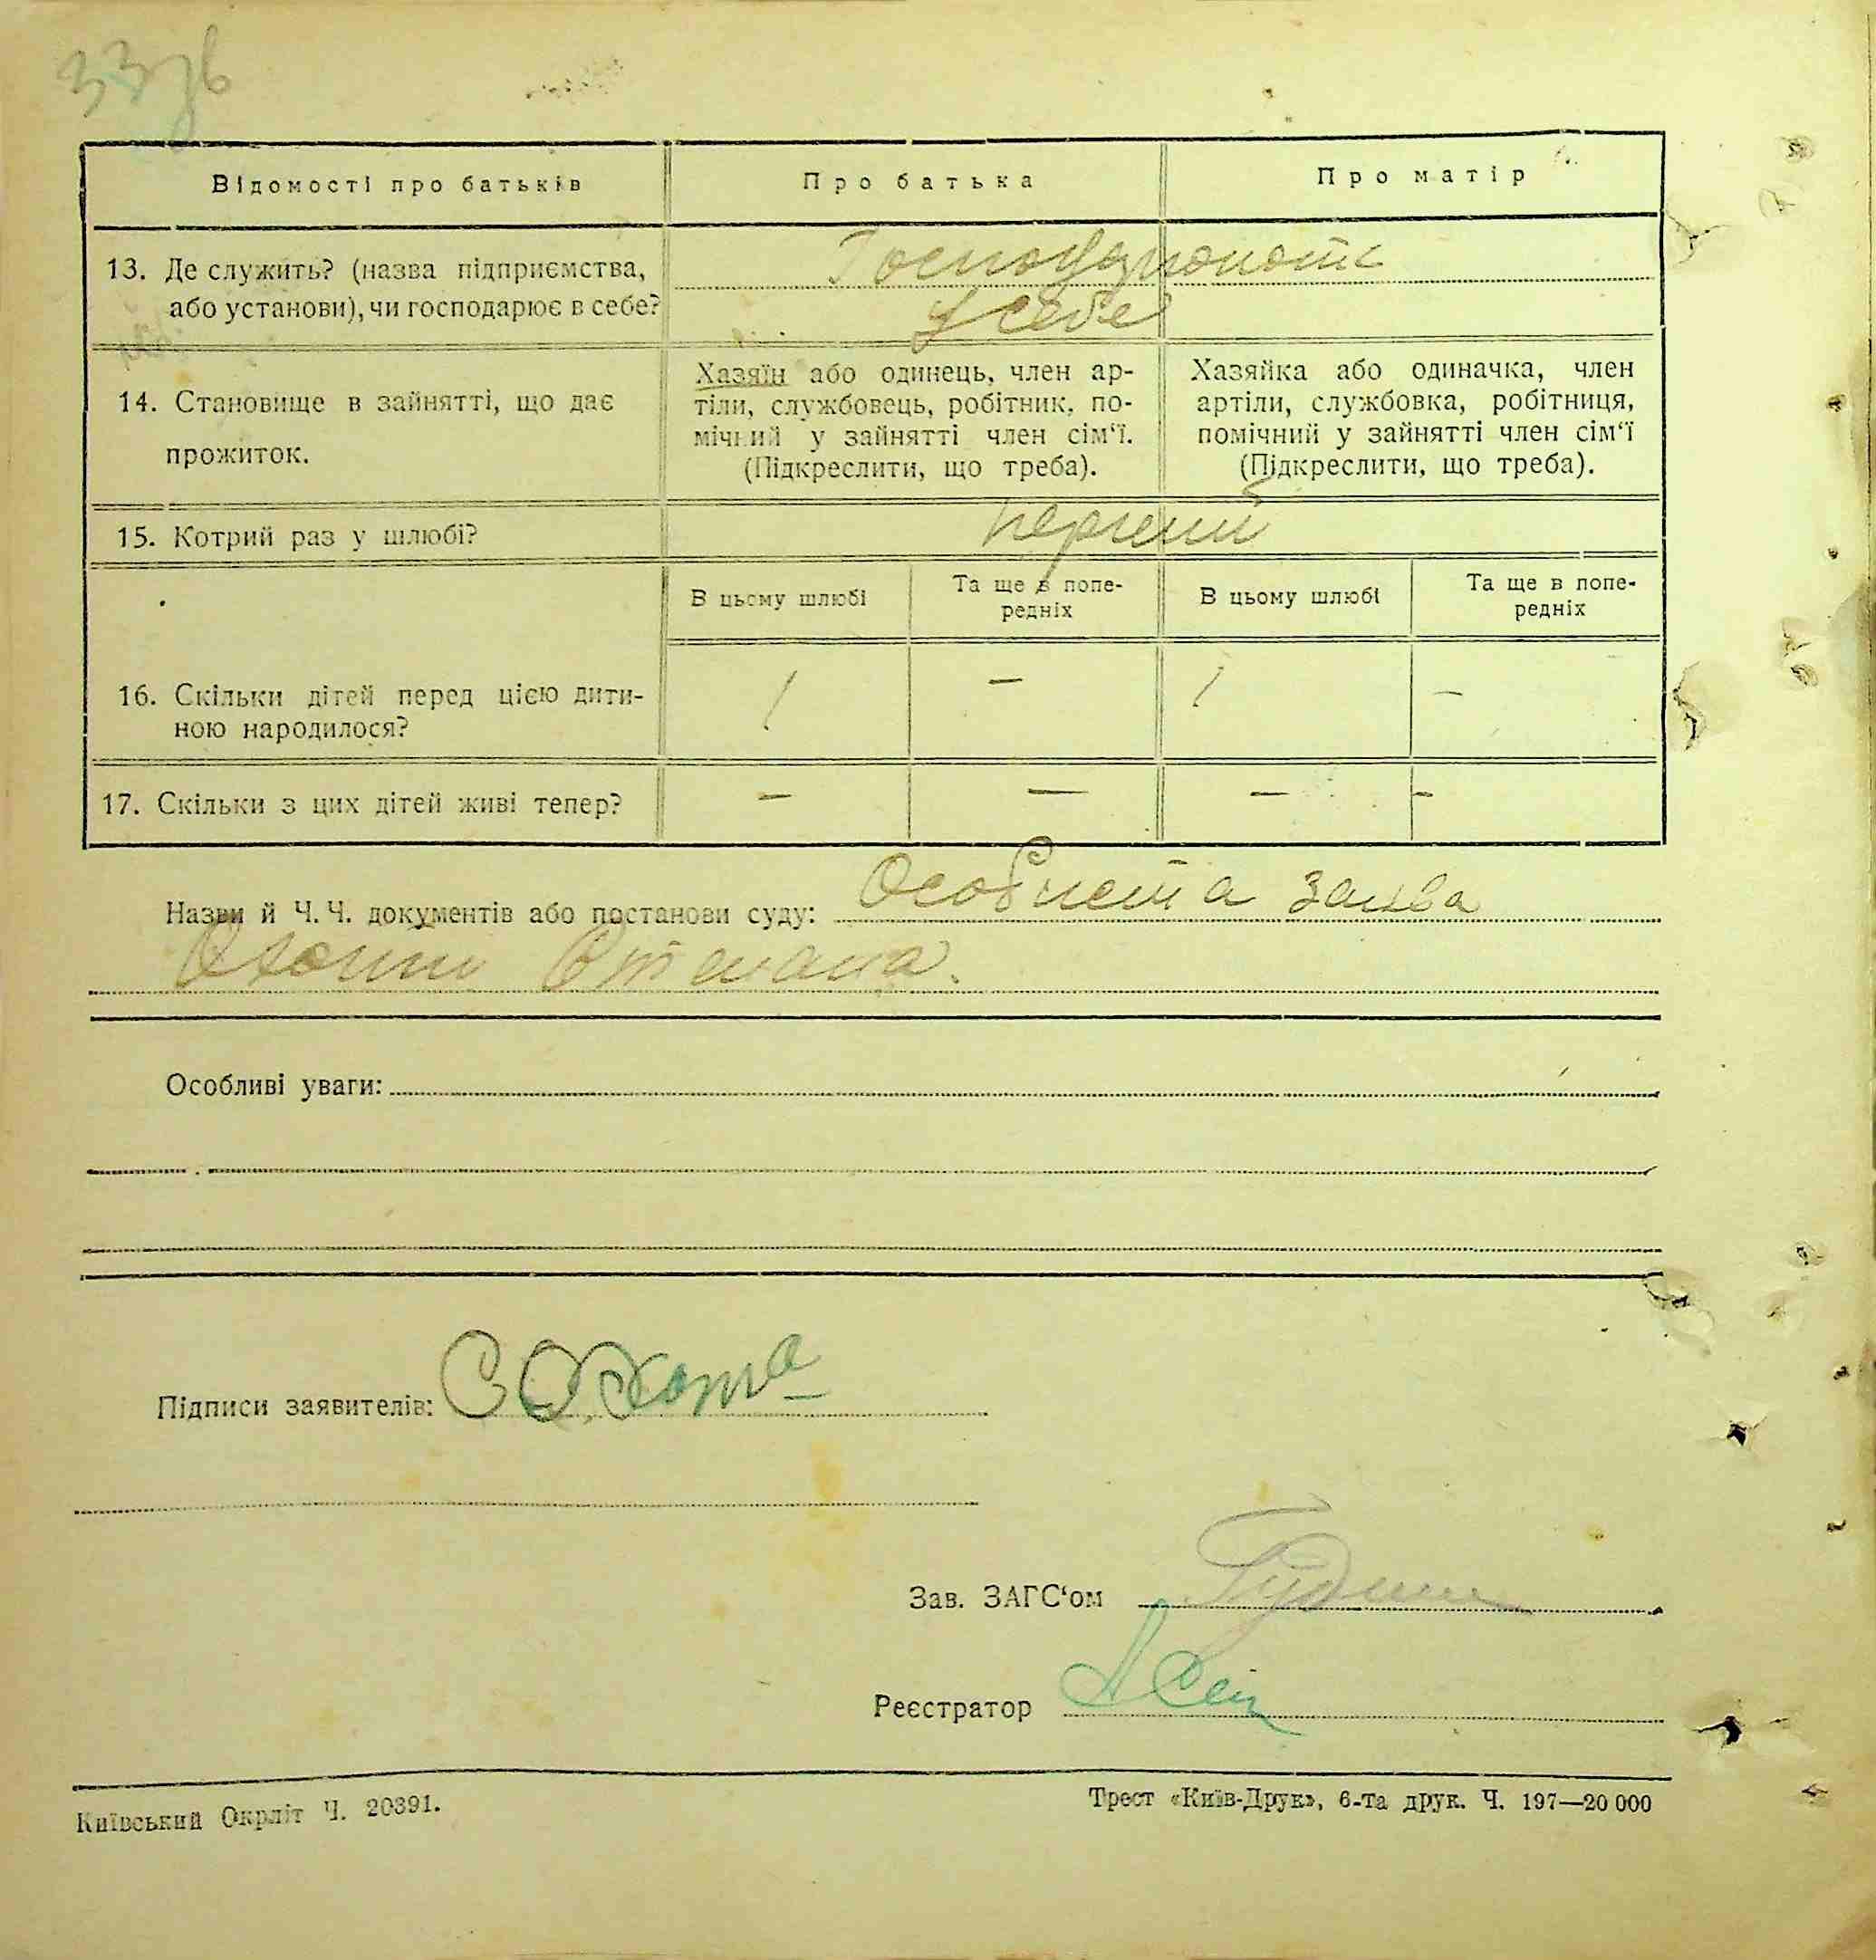 33зв
Відомості про батьків Про батька Про матір
13. Де служить? (назва підприємства,
або установи), чи господарює в себе?
Господарюють
у себе
14. Становище в зайнятті, що дає
прожиток.
Хазяїн або одинець, член ар-
тіли, службовець, робітник, по-
мічний у зайнятті член сім‘ї.
(Підкреслити, що треба).
Хазяйка або одиначка, член
артіли, службовка, робітниця,
помічний у зайнятті член сім‘ї
(Підкреслити, що треба).
15. Котрий раз у шлюбі? перший
В цьому шлюбі Та ще в попе-
редніх
В цьому шлюбі Та ще в попе-
редніх
16. Скільки дітей перед цією дити-
ною народилося?
1 — 1 —
17. Скільки з цих дітей живі тепер? — — — —
Назви й Ч. Ч. документів або постанови суду: Особиста заява
Степана.
Особливі уваги:
Підписи заявителів: С Охота
Зав. ЗАГС‘ом
Реєстратор
Київський Окрліт Ч. 20391.
Трест «Київ-Друк», 6-та друк. Ч. 197—20 000